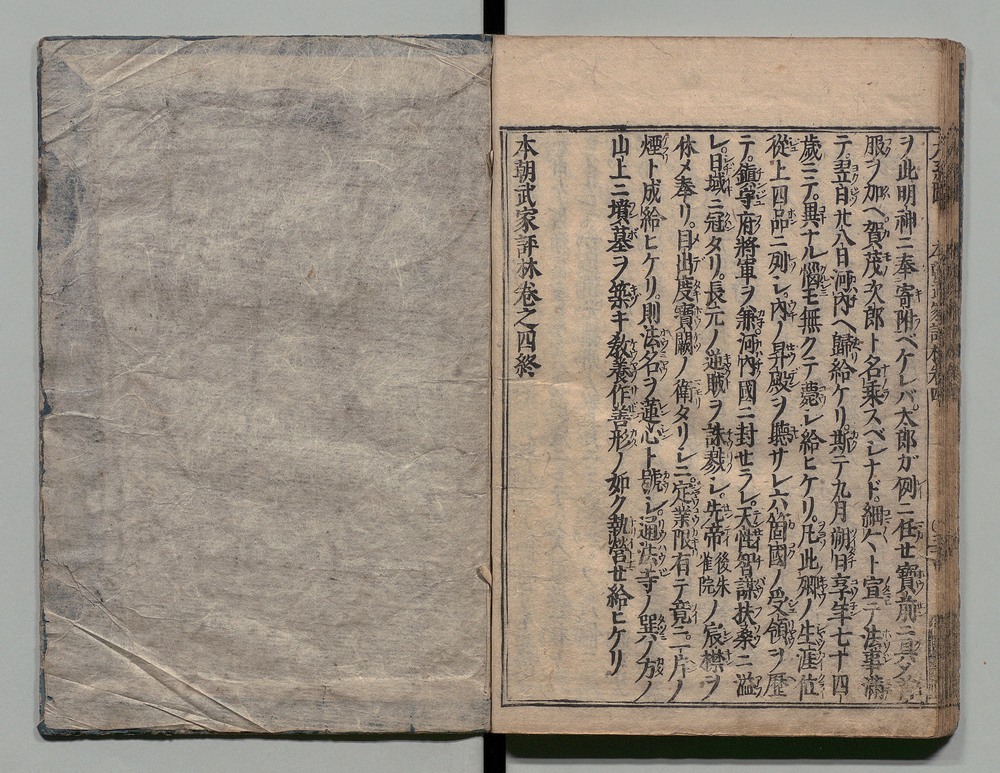 ヲ此明神ニ奉寄附ベケレバ太郎ガ例ニ任セ寶前ニ具
服ヲ加ヘ賀茂次郎ト名乗スベシナド細〱ト宣テ法事滿
テ翌日廿八日河内ヘ歸給ケリ斯テ九月朔日享年七十四
歳ニテ異ナル惱モ無クテ薨シ給ヒケリ凡此卿ノ生涯位
從上四品ニ列シ内ノ昇殿ヲ聽サレ六箇國ノ受領ヲ歴
テ鎮守府將軍ヲ兼河内國ニ封セラレ天性智謀扶桒ニ溢
レ日域ニ冠タリ長元ノ逆賊ヲ誅戮シ先帝後朱雀院ノ宸襟ヲ
休メ奉リ目出度寶闕ノ衛タリシニ定業限有テ竟ニ一片ノ
煙ト成給ヒケリ則法名ヲ蓮心ト號シ通法寺ノ巽ノ方ノ
山上ニ墳墓ヲ築キ敎養作善形ノ如ク執營セ給ヒケリ
本朝武家評林卷之四終